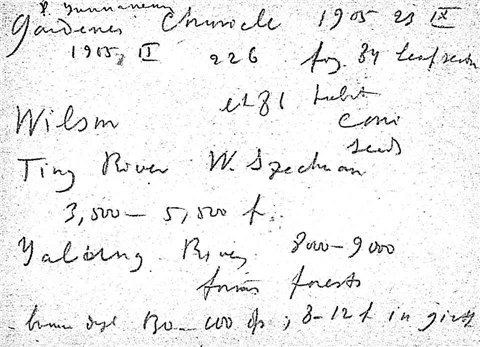 P. yunnanensis
Gardeners Chronicle 1905 23 IX
1905, II 226 fig. 84 leaf section
et 81 habit
Wilson Cone
seeds
Tung River W. Szechuan
3,500 – 5,500 f.
Yalung River 8000–9000
forms forests
80–100 ; 8–12 f in girth